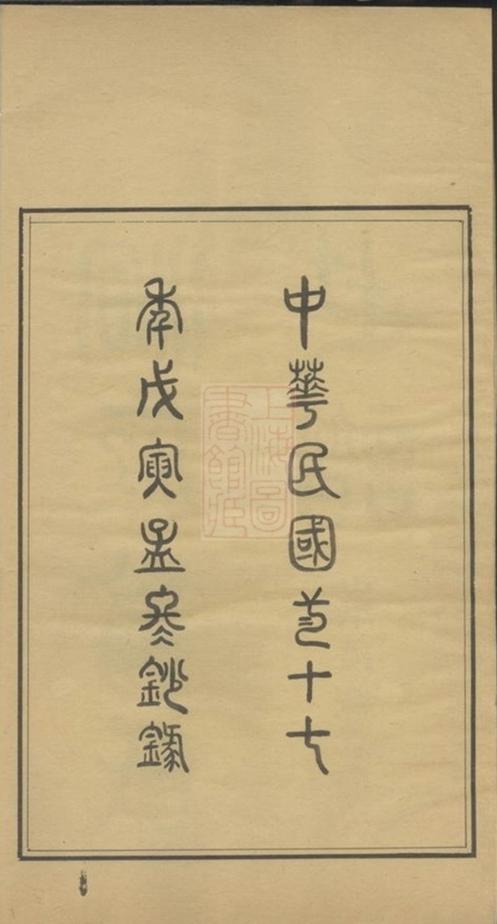 中華民國弍十七
年戊寅孟冬鈔錄
上海圖
書館藏